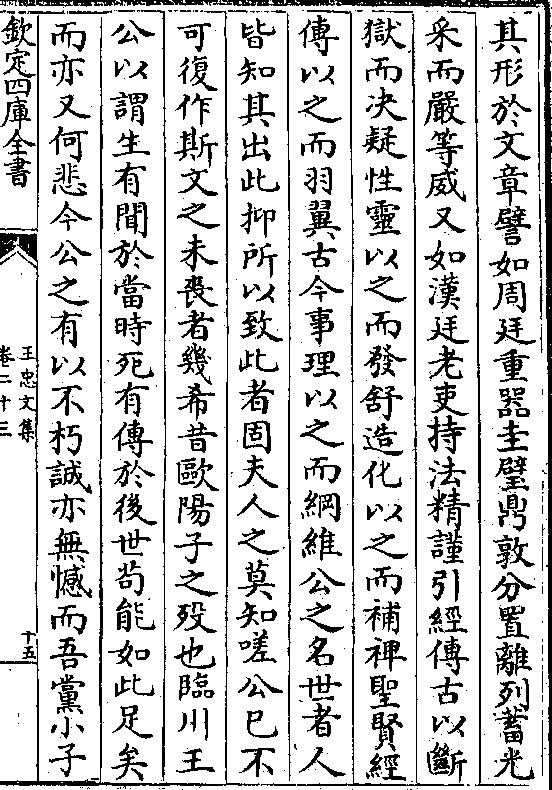 其形於文章譬如周廷重器圭璧鼎敦分置離列蓄光
采而嚴等威又如漢廷老吏持法精謹引經傳古以斷
獄而决疑性靈以之而發舒造化以之而補裨聖賢經
傳以之而羽翼古今事理以之而綱維公之名世者人
皆知其出此抑所以致此者固夫人之莫知嗟公已不
可復作斯文之未喪者幾希昔歐陽子之歿也臨川王
公以謂生有聞於當時死有傳於後世茍能如此足矣
而亦又何悲今公之有以不朽誠亦無憾而吾黨小子
欽定四庫全書
王忠文集
卷二十三
十五